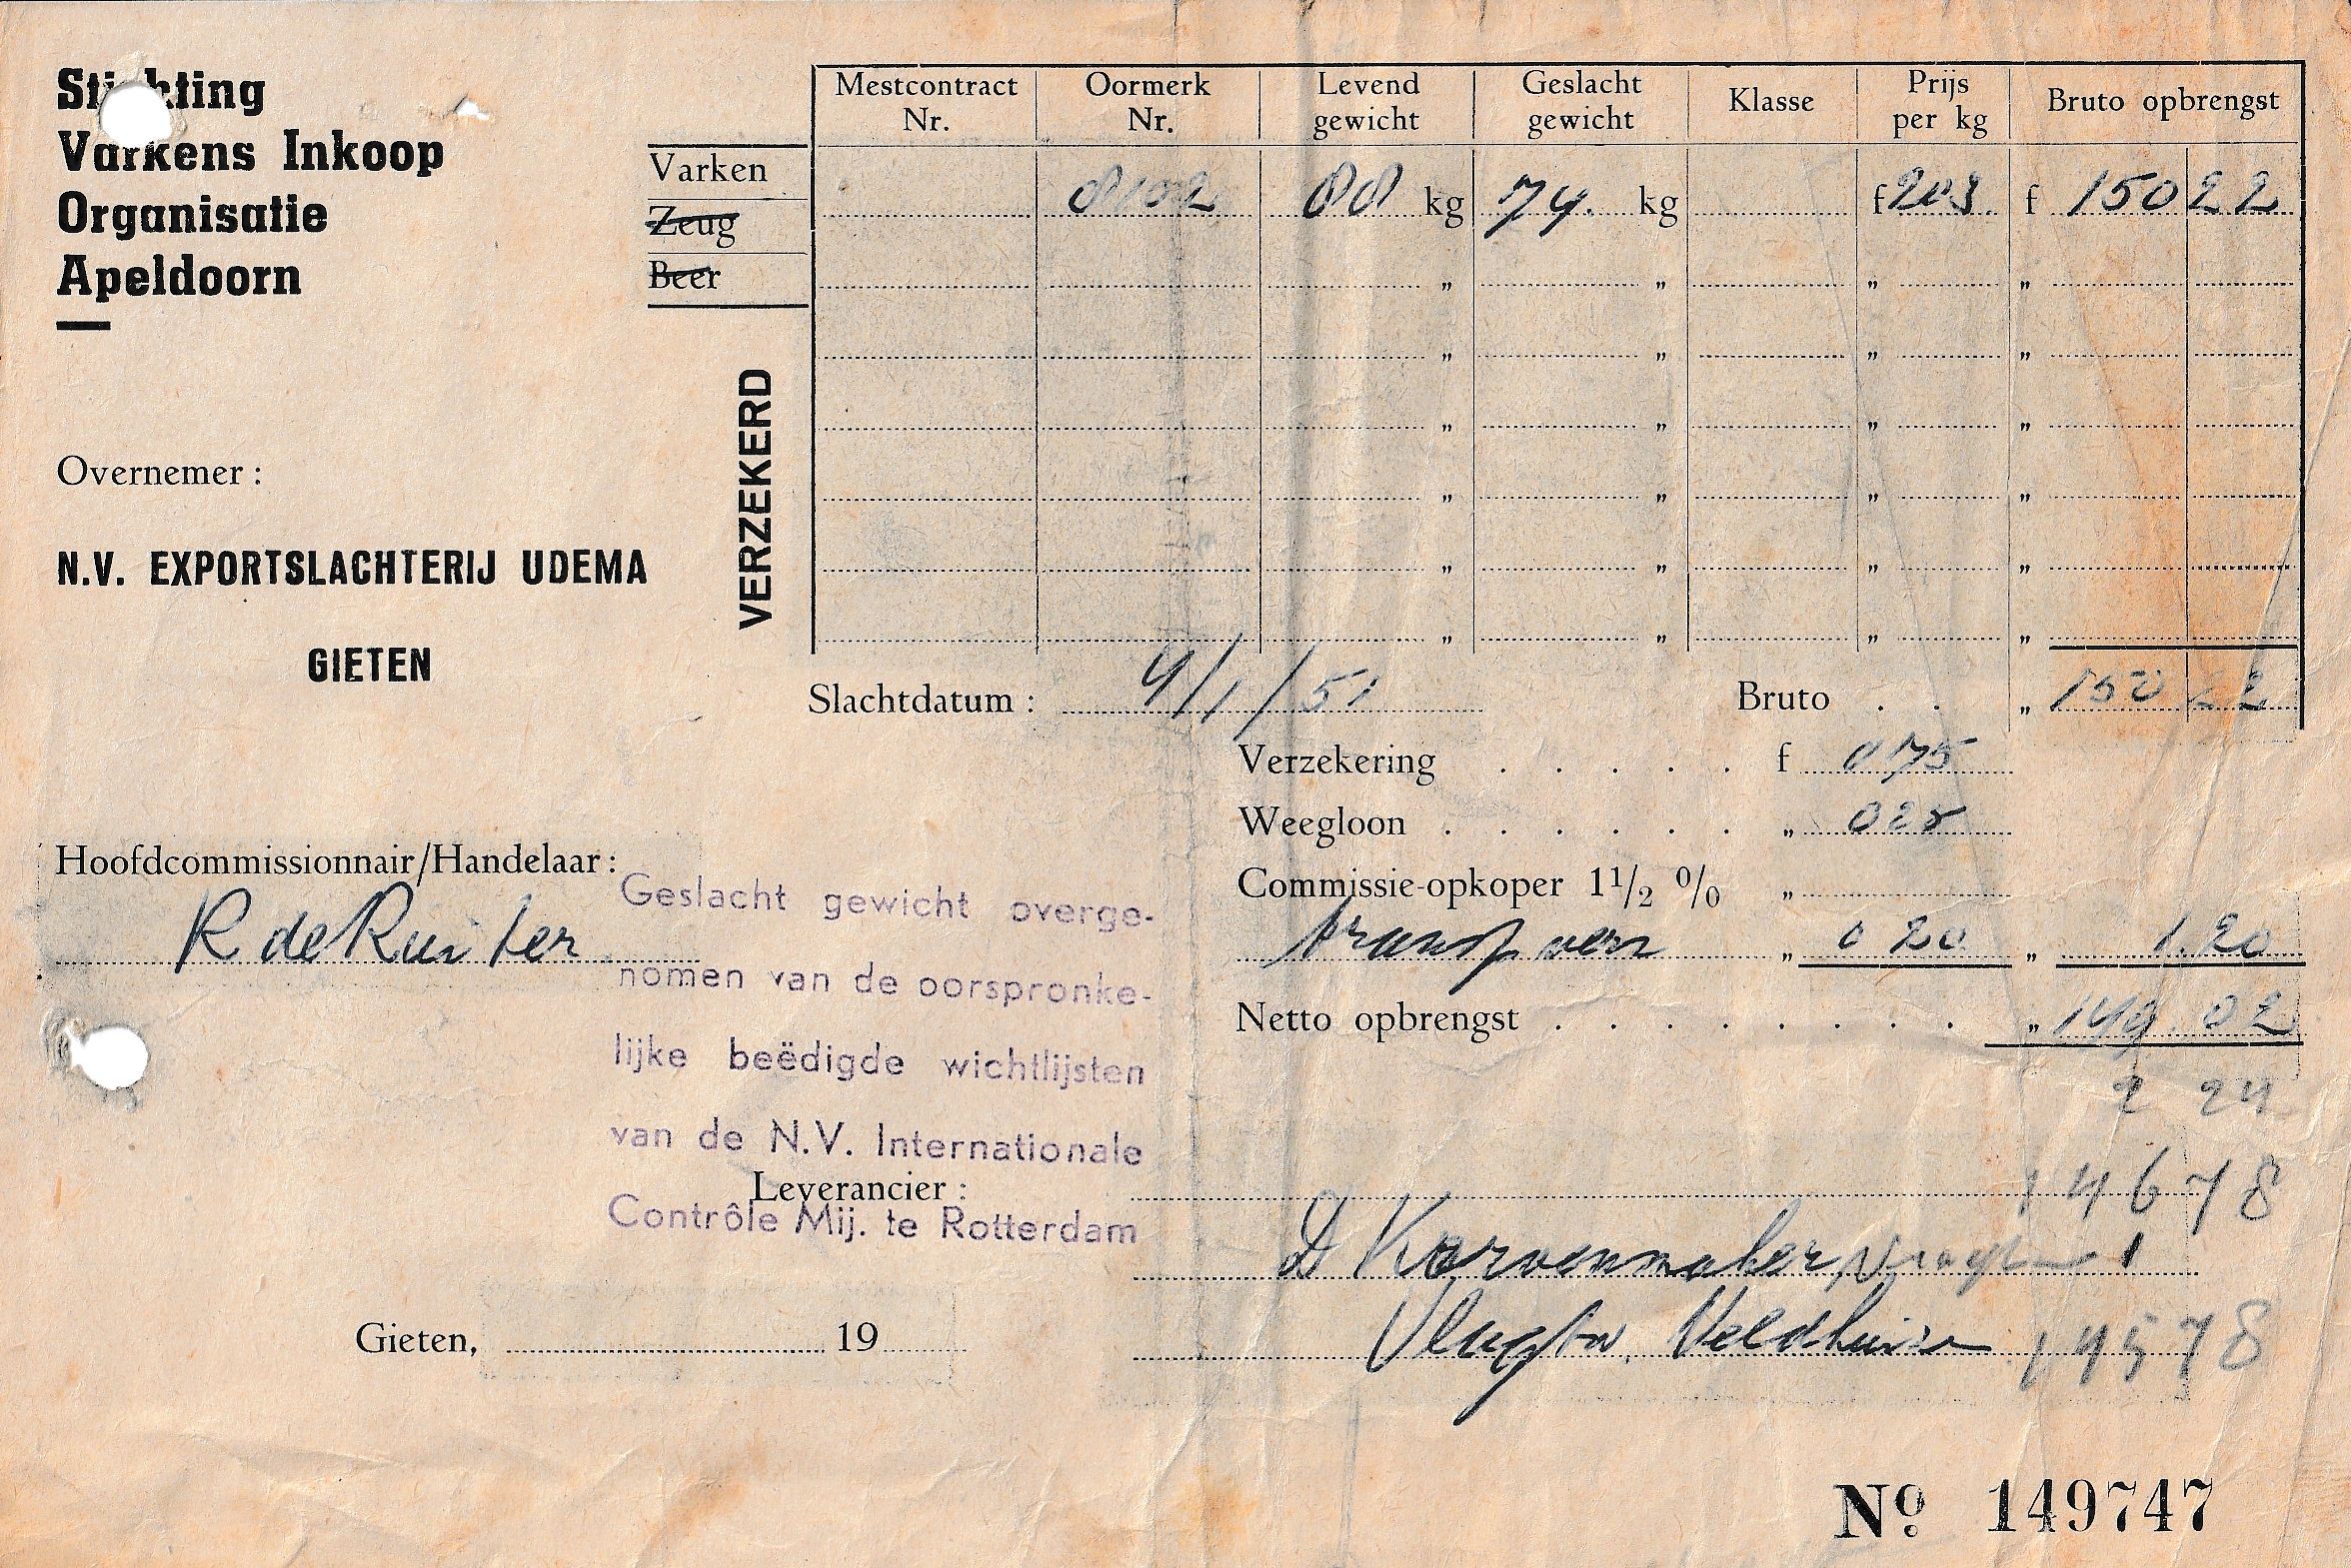 Stichting
Varkens Inkoop
Organisatie
Apeldoorn
Overnemer :
N.V. EXPORTSLACHTERIJ UDEMA
GIETEN
VERZEKERD
Mestcontract Nr. Oormerk Nr. Levend gewicht Geslacht gewicht Klasse Prijs per kg Bruto opbrengst
Varken 8102 88 kg 74. kg f 203 f 150 22
Zeug
Beer
„ „ „ „
„ „ „ „
„ „ „ „
„ „ „ „
„ „ „ „
„ „ „ „
Slachtdatum : 4/1/51 Bruto . . „ 150 22
Verzekering . . . . . f 0 75
Weegloon . . . . . . „ 0 25
Commissie-opkoper 1 1/2 % „
transp verz „ 0 20 „ 1.20
Netto opbrengst . . . . . . . . „ 149.02
2 24
146 78
Hoofdcommissionnair/Handelaar :
R de Ruiter
Geslacht gewicht overge-
nomen van de oorspronke-
lijke beëdigde wichtlijsten
van de N.V. Internationale
Contrôle Mij. te Rotterdam
Leverancier :
D Korvenmaker 1
Vlagtw. Veldhuizen 145 78
Gieten, 19
No. 149747